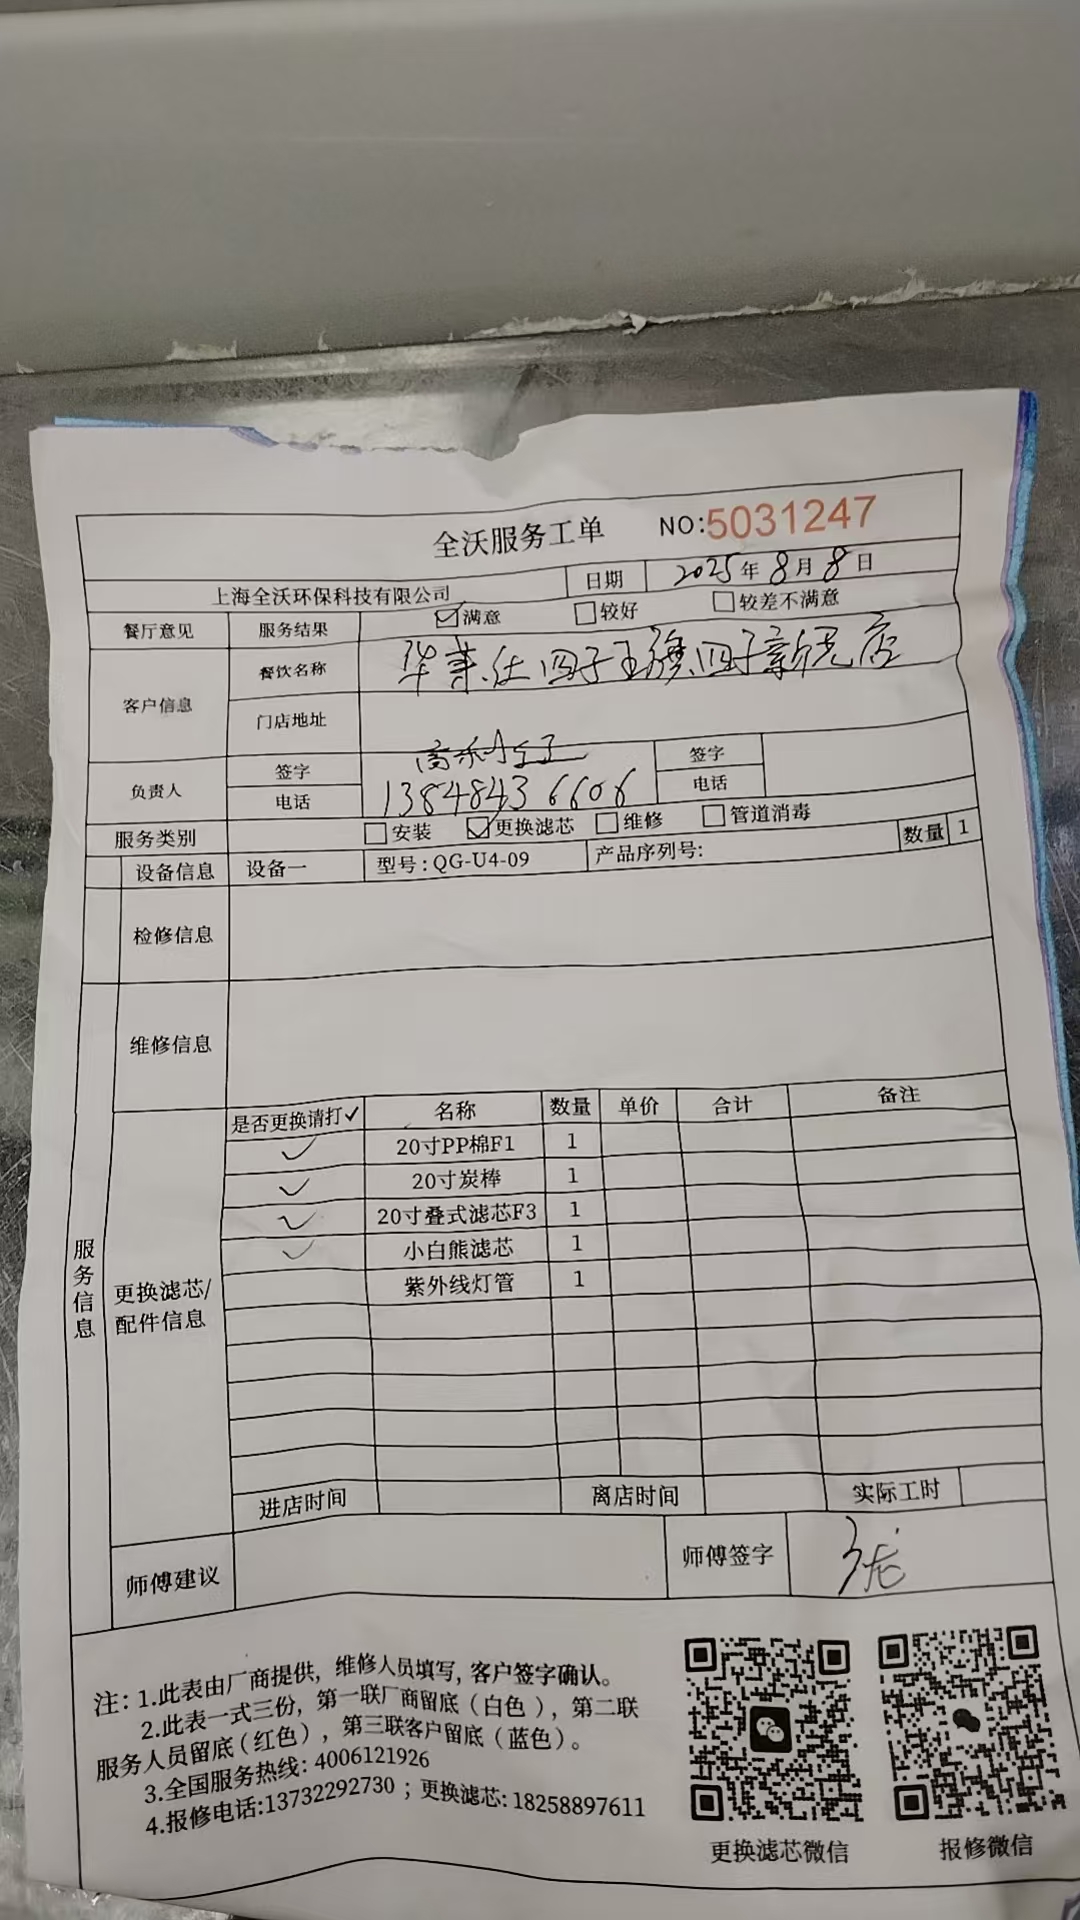 全沃服务工单 NO:5031247
上海全沃环保科技有限公司 日期 2025年8月8日
餐厅意见 服务结果 ☑满意 □较好 □较差不满意
客户信息 餐饮名称 华莱仕四子王旗四子新元店
门店地址
负责人 签字 签字
电话 13848436606 电话
服务类别 □安装 ☑更换滤芯 □维修 □管道消毒
设备信息 设备一 型号:QG-U4-09 产品序列号: 数量 1
检修信息
维修信息
服务信息
更换滤芯/配件信息
是否更换请打✓ 名称 数量 单价 合计 备注
✓ 20寸PP棉F1 1
✓ 20寸炭棒 1
✓ 20寸叠式滤芯F3 1
✓ 小白熊滤芯 1
紫外线灯管 1
进店时间 离店时间 实际工时
师傅建议 师傅签字
注: 1.此表由厂商提供, 维修人员填写, 客户签字确认。
2.此表一式三份, 第一联厂商留底(白色), 第二联
服务人员留底(红色), 第三联客户留底(蓝色)。
3.全国服务热线: 4006121926
4.报修电话:13732292730 ; 更换滤芯: 18258897611
更换滤芯微信 报修微信